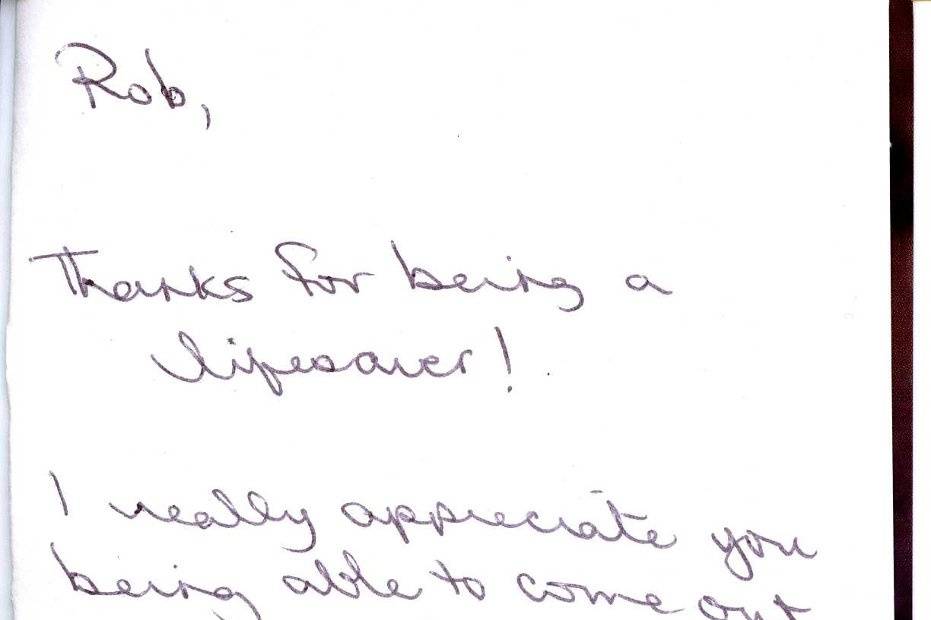 Rob,
Thanks for being a
lifesaver!
I really appreciate you
being able to come out